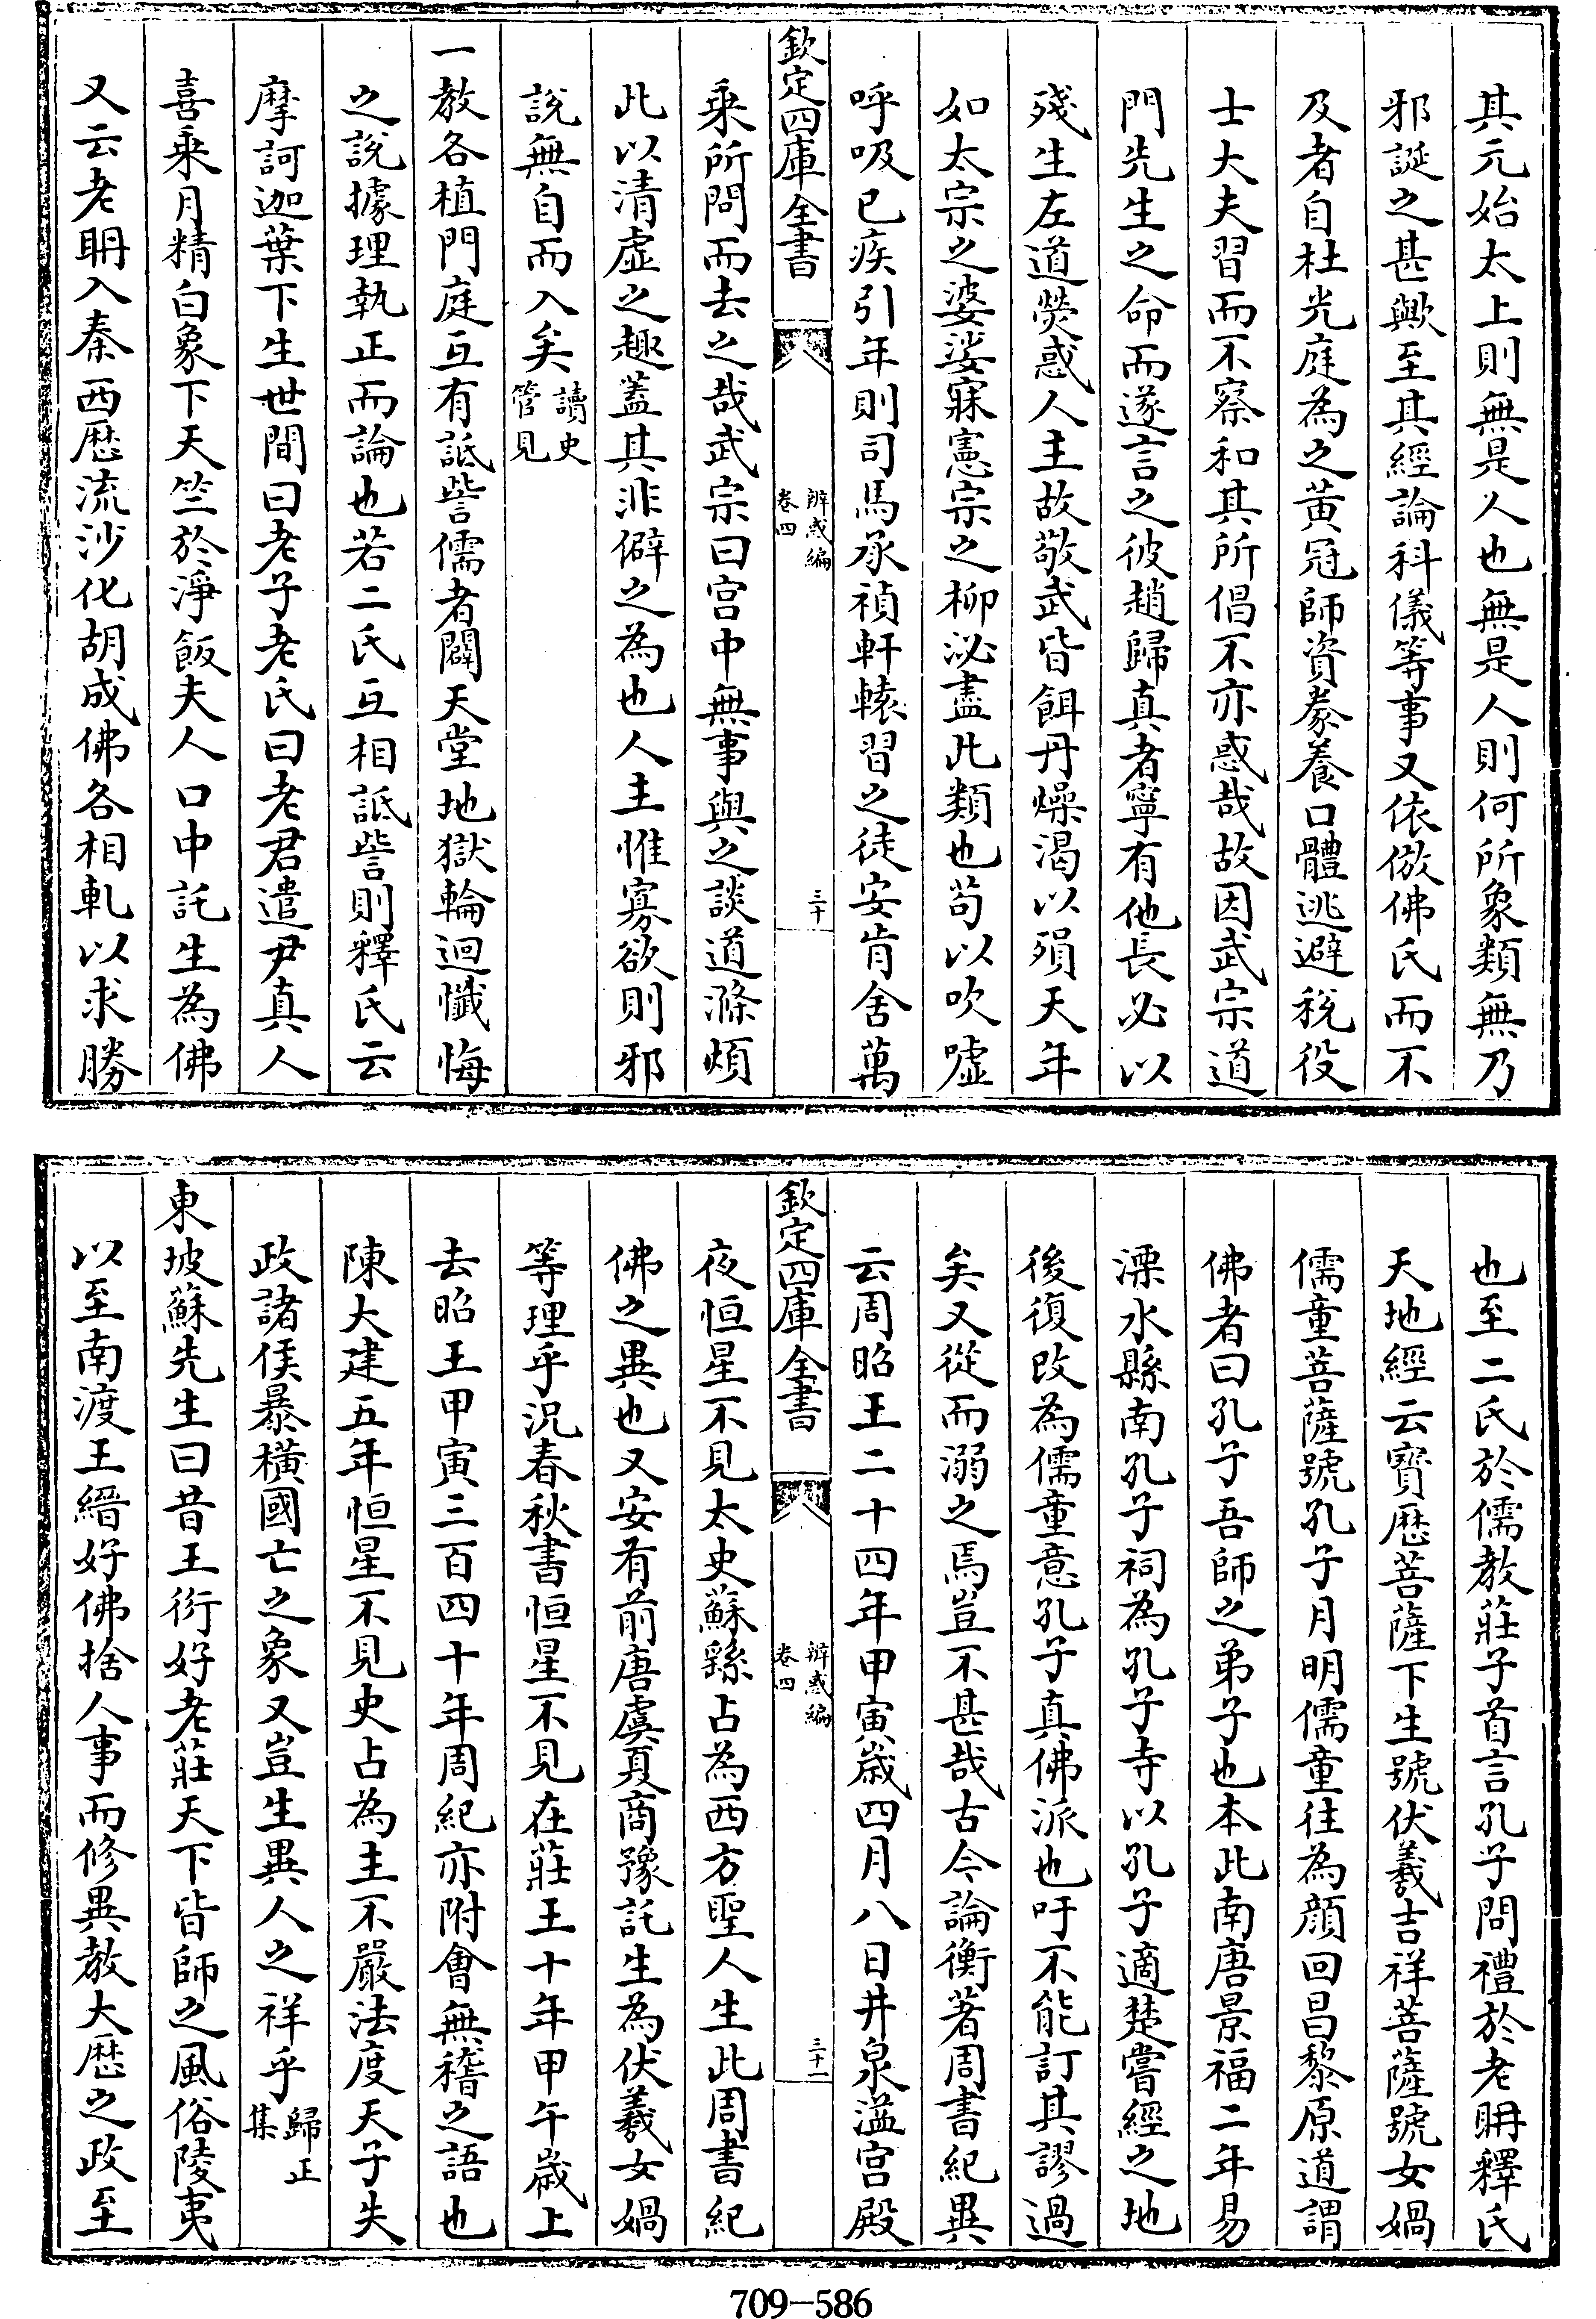 其元始太上則無是人也無是人則何所象類無乃
邪誕之甚歟至其經論科儀等事又依倣佛氏而不
及者自杜光庭為之黄冠師資豢養口體逃避税役
士大夫習而不察和其所倡不亦惑哉故因武宗道
門先生之命而遂言之彼趙歸真者寧有他長必以
殘生左道熒惑人主故敬武皆餌丹燥渴以殞天年
如太宗之婆娑寐憲宗之柳泌盡此類也茍以吹噓
呼吸已疾引年則司馬承禎軒轅習之徒安肯舍萬
欽定四庫全書
辨惑編
卷四
三十
乘所問而去之哉武宗曰宫中無事與之談道滌煩
此以清虛之趣蓋其非僻之為也人主惟寡欲則邪
說無自而入矣讀史管見
一教各植門庭互有詆訾儒者闢天堂地獄輪迴懺悔
之說據理執正而論也若二氏互相詆訾則釋氏云
摩訶迦葉下生世間曰老子老氏曰老君遣尹真人
喜乘月精白象下天竺於淨飯夫人口中託生為佛
又云老𣆀入秦西歴流沙化胡成佛各相軋以求勝
也至二氏於儒教莊子首言孔子問禮於老𣆀釋氏
天地經云寳歴菩薩下生號伏羲吉祥菩薩號女媧
儒童菩薩號孔子月明儒童往為顔回昌黎原道謂
佛者曰孔子吾師之弟子也本此南唐景福二年易
溧水縣南孔子祠為孔子寺以孔子適楚嘗經之地
後復改為儒童意孔子真佛派也吁不能訂其謬過
矣又從而溺之焉豈不甚哉古今論衡著周書紀異
云周昭王二十四年甲寅歲四月八日井泉溢宫殿
欽定四庫全書
辨惑編
卷四
三十一
夜恒星不見太史蘇繇占為西方聖人生此周書紀
佛之異也又安有前唐虞夏商豫託生為伏羲女媧
等理乎況春秋書恒星不見在莊王十年甲午歲上
去昭王甲寅三百四十年周紀亦附會無稽之語也
陳大建五年恒星不見史占為主不嚴法度天子失
政諸侯暴橫國亡之象又豈生異人之祥乎歸正集
東坡蘇先生曰昔王衍好老莊天下皆師之風俗陵夷
以至南渡王縉好佛捨人事而修異教大歴之政至
709-586